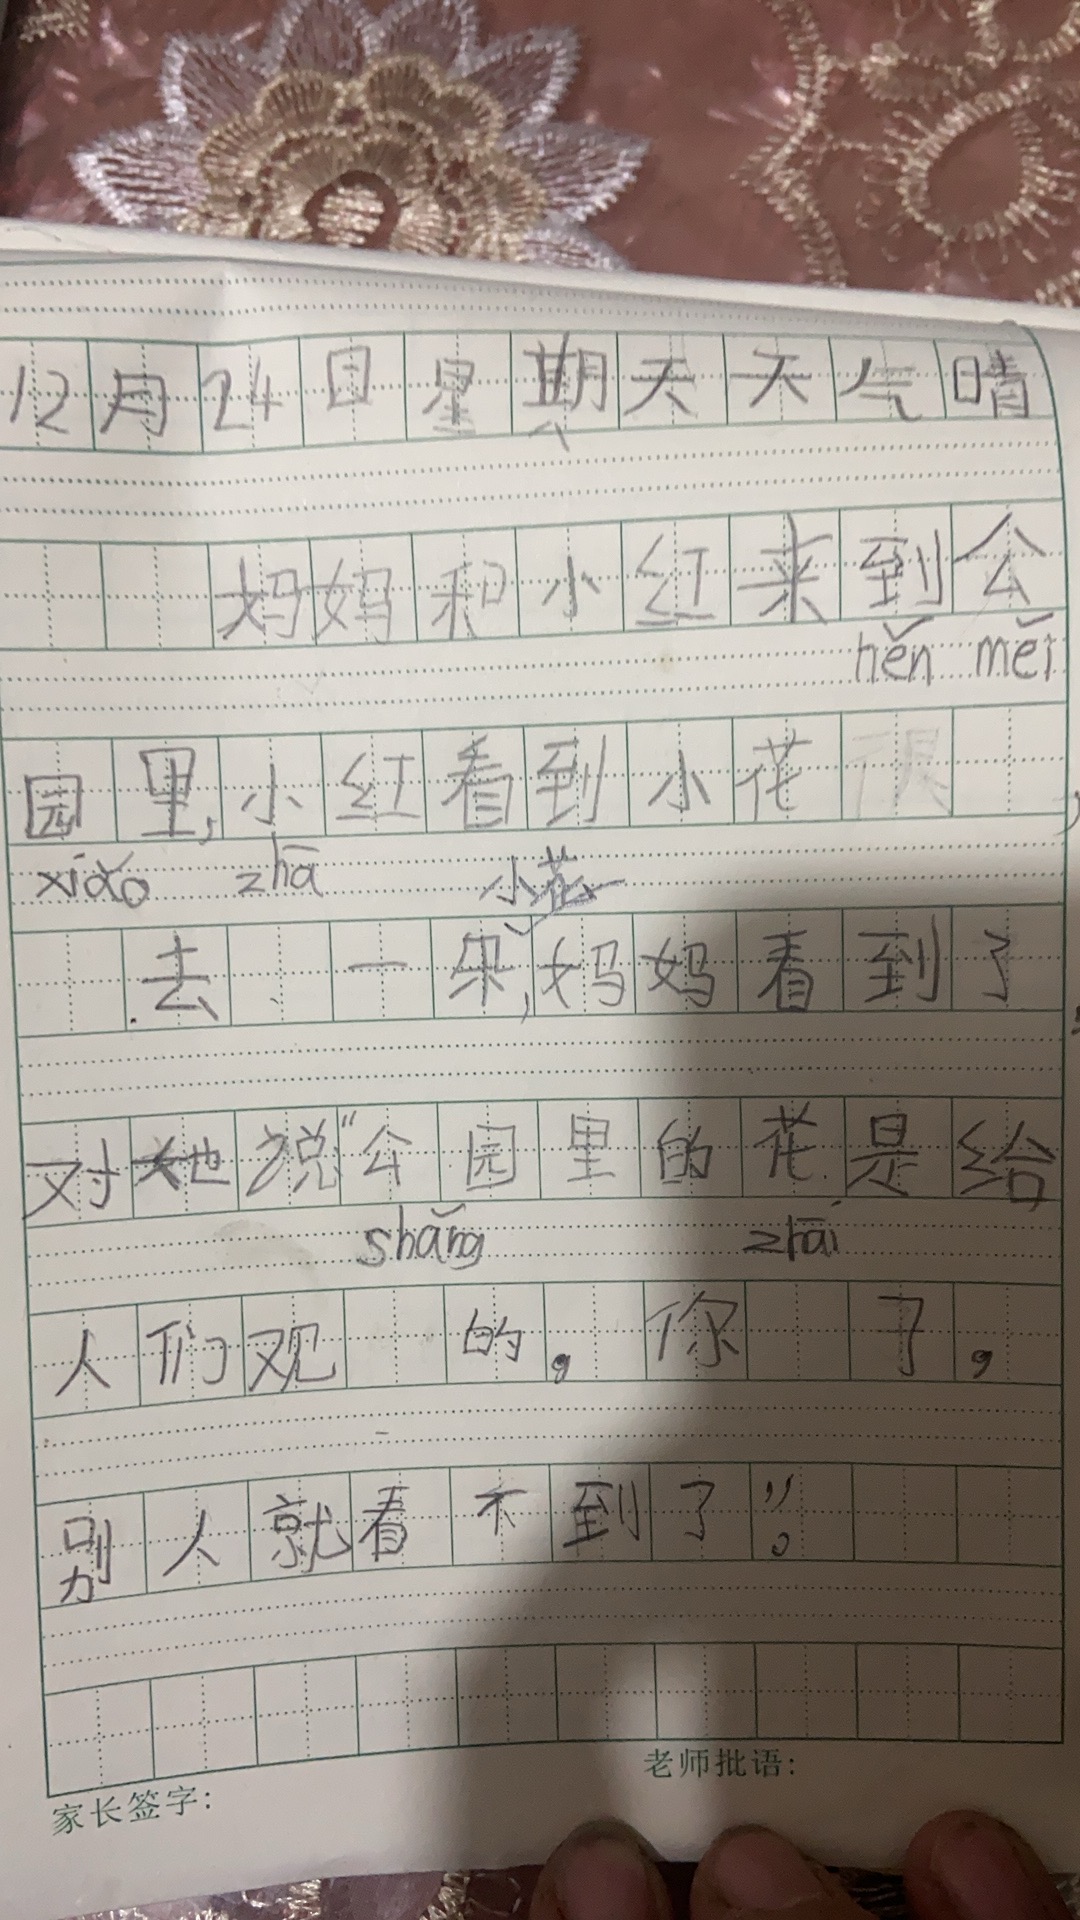 12月24日星期天天气晴
妈妈和小红来到公
hěn měi
园里,小红看到小花很,
xiǎo zhā 小花
去一朵,妈妈看到了
对她说"公园里的花是给
shǎng zhāi
人们观的,你了,
别人就看不到了"。
老师批语:
家长签字: